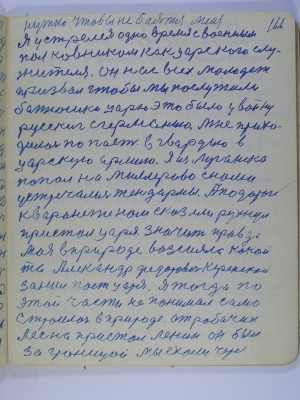 нужно чтобы не боятся меня
166
Я устрелся одно время своенным
полковником как царского слу-
жителя. Он нас всех молодеж
призвал чтобы мы послужили
батюшке царю это было у войну
русских с германью. Мне прихо-
дилось по в гвардью в
царскую армию. Я из Луганска
попал на Миллерово снами
устречалися жендармы. А подороге
к Воронеже нам сказали рухнул
пристол царя значить правда
моя в природе взялися какой
та Александр федорович Керенской
занял пост царя. Я тогда по
этой части не понимал само
строилось в природе. от рабочих
Лесна пристол Ленин он был
За границой мы ехали чере